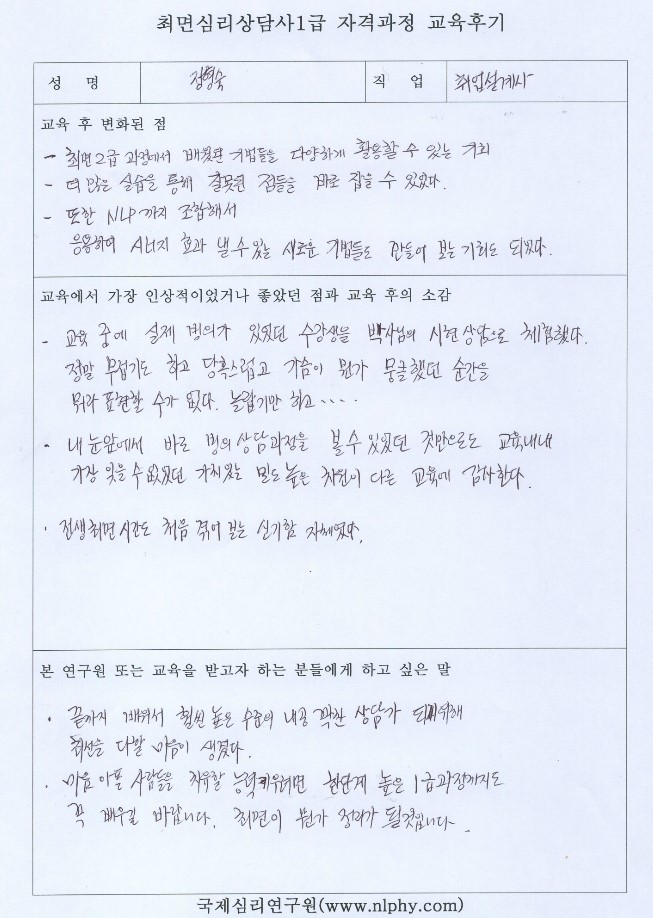 최면심리상담사1급 자격과정 교육후기
성 명 정형숙 직 업 취업설계사
교육 후 변화된 점
- 최면2급 과정에서 배웠던 기법들을 다양하게 활용할 수 있는 기회
- 더 많은 실습을 통해 잘못된 점들을 바로 잡을 수 있었다.
- 또한 NLP까지 조합해서
응용하여 시너지 효과 낼 수 있는 새로운 기법들도 만들어 보는 기회도 되었다.
교육에서 가장 인상적이었거나 좋았던 점과 교육 후의 소감
- 교육 중에 실제 빙의가 있었던 수강생을 박사님의 시현 상담으로 체험했다.
정말 무섭기도 하고 당혹스럽고 가슴이 뭔가 뭉클했던 순간을
뭐라 표현할 수가 없다. 놀랍기만 하고....
- 내 눈앞에서 바로 빙의상담과정을 볼 수 있었던 것만으로도 교육내내
가장 잊을 수 없었던 가치있는 밀도 높은 차원이 다른 교육에 감사한다.
· 전생최면 시간도 처음 겪어 보는 신기함 자체였다.
본 연구원 또는 교육을 받고자 하는 분들에게 하고 싶은 말
· 끝까지 배워서 훨씬 높은 수준의 내공 꽉찬 상담가 되기위해
최선을 다할 마음이 생겼다.
· 마음 아픈 사람들을 치유할 능력키우려면 한단계 높은 1급과정까지도
꼭 배우길 바랍니다. 최면이 뭔가 정리가 될것입니다.
국제심리연구원(www.nlphy.com)